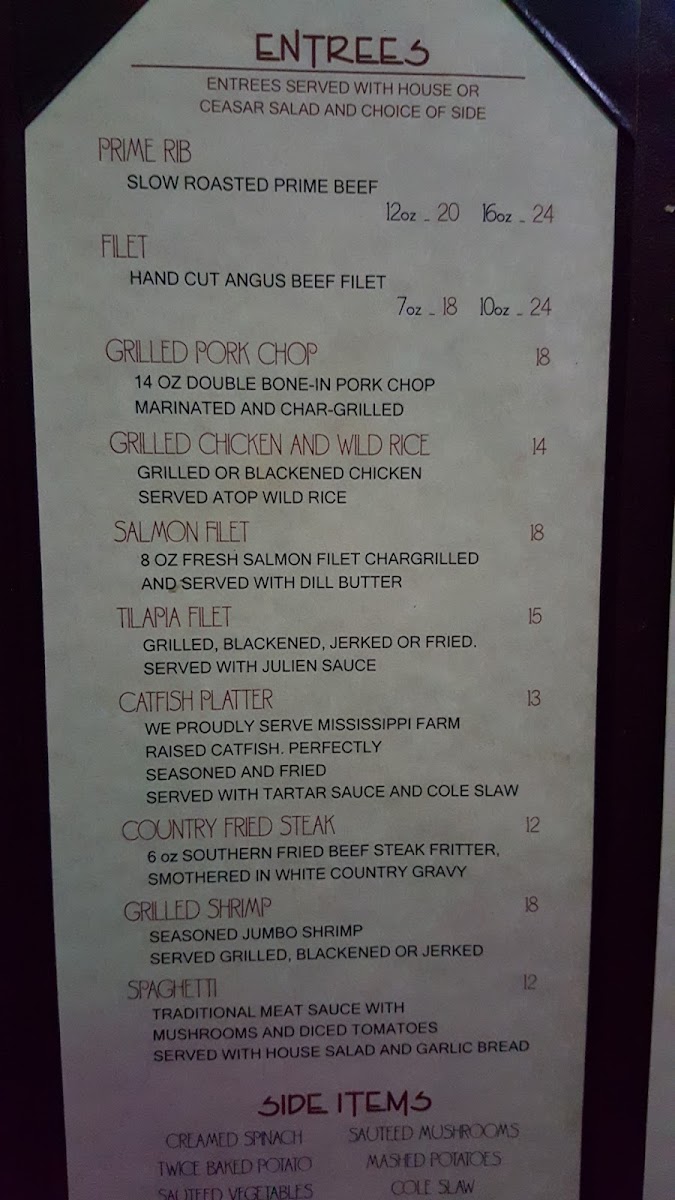 ENTREES
ENTREES SERVED WITH HOUSE OR
CEASAR SALAD AND CHOICE OF SIDE
PRIME RIB
SLOW ROASTED PRIME BEEF
12oz - 20 16oz - 24
FILET
HAND CUT ANGUS BEEF FILET
7oz - 18 10oz - 24
GRILLED PORK CHOP 18
14 OZ DOUBLE BONE-IN PORK CHOP
MARINATED AND CHAR-GRILLED
GRILLED CHICKEN AND WILD RICE 14
GRILLED OR BLACKENED CHICKEN
SERVED ATOP WILD RICE
SALMON FILET 18
8 OZ FRESH SALMON FILET CHARGRILLED
AND SERVED WITH DILL BUTTER
TILAPIA FILET 15
GRILLED, BLACKENED, JERKED OR FRIED.
SERVED WITH JULIEN SAUCE
CATFISH PLATTER 13
WE PROUDLY SERVE MISSISSIPPI FARM
RAISED CATFISH. PERFECTLY
SEASONED AND FRIED
SERVED WITH TARTAR SAUCE AND COLE SLAW
COUNTRY FRIED STEAK 12
6 oz SOUTHERN FRIED BEEF STEAK FRITTER,
SMOTHERED IN WHITE COUNTRY GRAVY
GRILLED SHRIMP 18
SEASONED JUMBO SHRIMP
SERVED GRILLED, BLACKENED OR JERKED
SPAGHETTI 12
TRADITIONAL MEAT SAUCE WITH
MUSHROOMS AND DICED TOMATOES
SERVED WITH HOUSE SALAD AND GARLIC BREAD
SIDE ITEMS
CREAMED SPINACH SAUTEED MUSHROOMS
TWICE BAKED POTATO MASHED POTATOES
SAUTEED VEGETABLES COLE SLAW